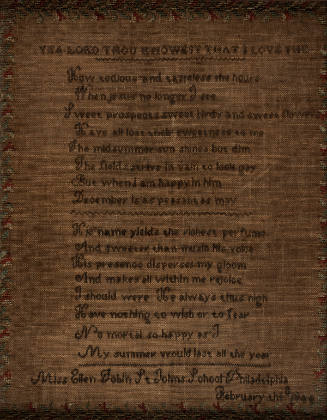 YEA LORD THOU KNOWEST THAT I LOVE THE
How tedious and tasteless the hours
When jesus no longer I see
Sweet prospects sweet birds and sweet flowers
Have all lost their sweetness to me
The midsummer sun shines but dim
The fields strive in vain to look gay
But when I am happy in him
December is as pleasant as may
His name yields the richest perfume
And sweeter than music his voice
His presence disperses my gloom
And makes all within me rejoice
I should were He always thus nigh
Have nothing to wish or to fear
No mortal so happy as I
My summer would last all the year
Miss Ellen Tobin St Johns School Philadelphia
February the